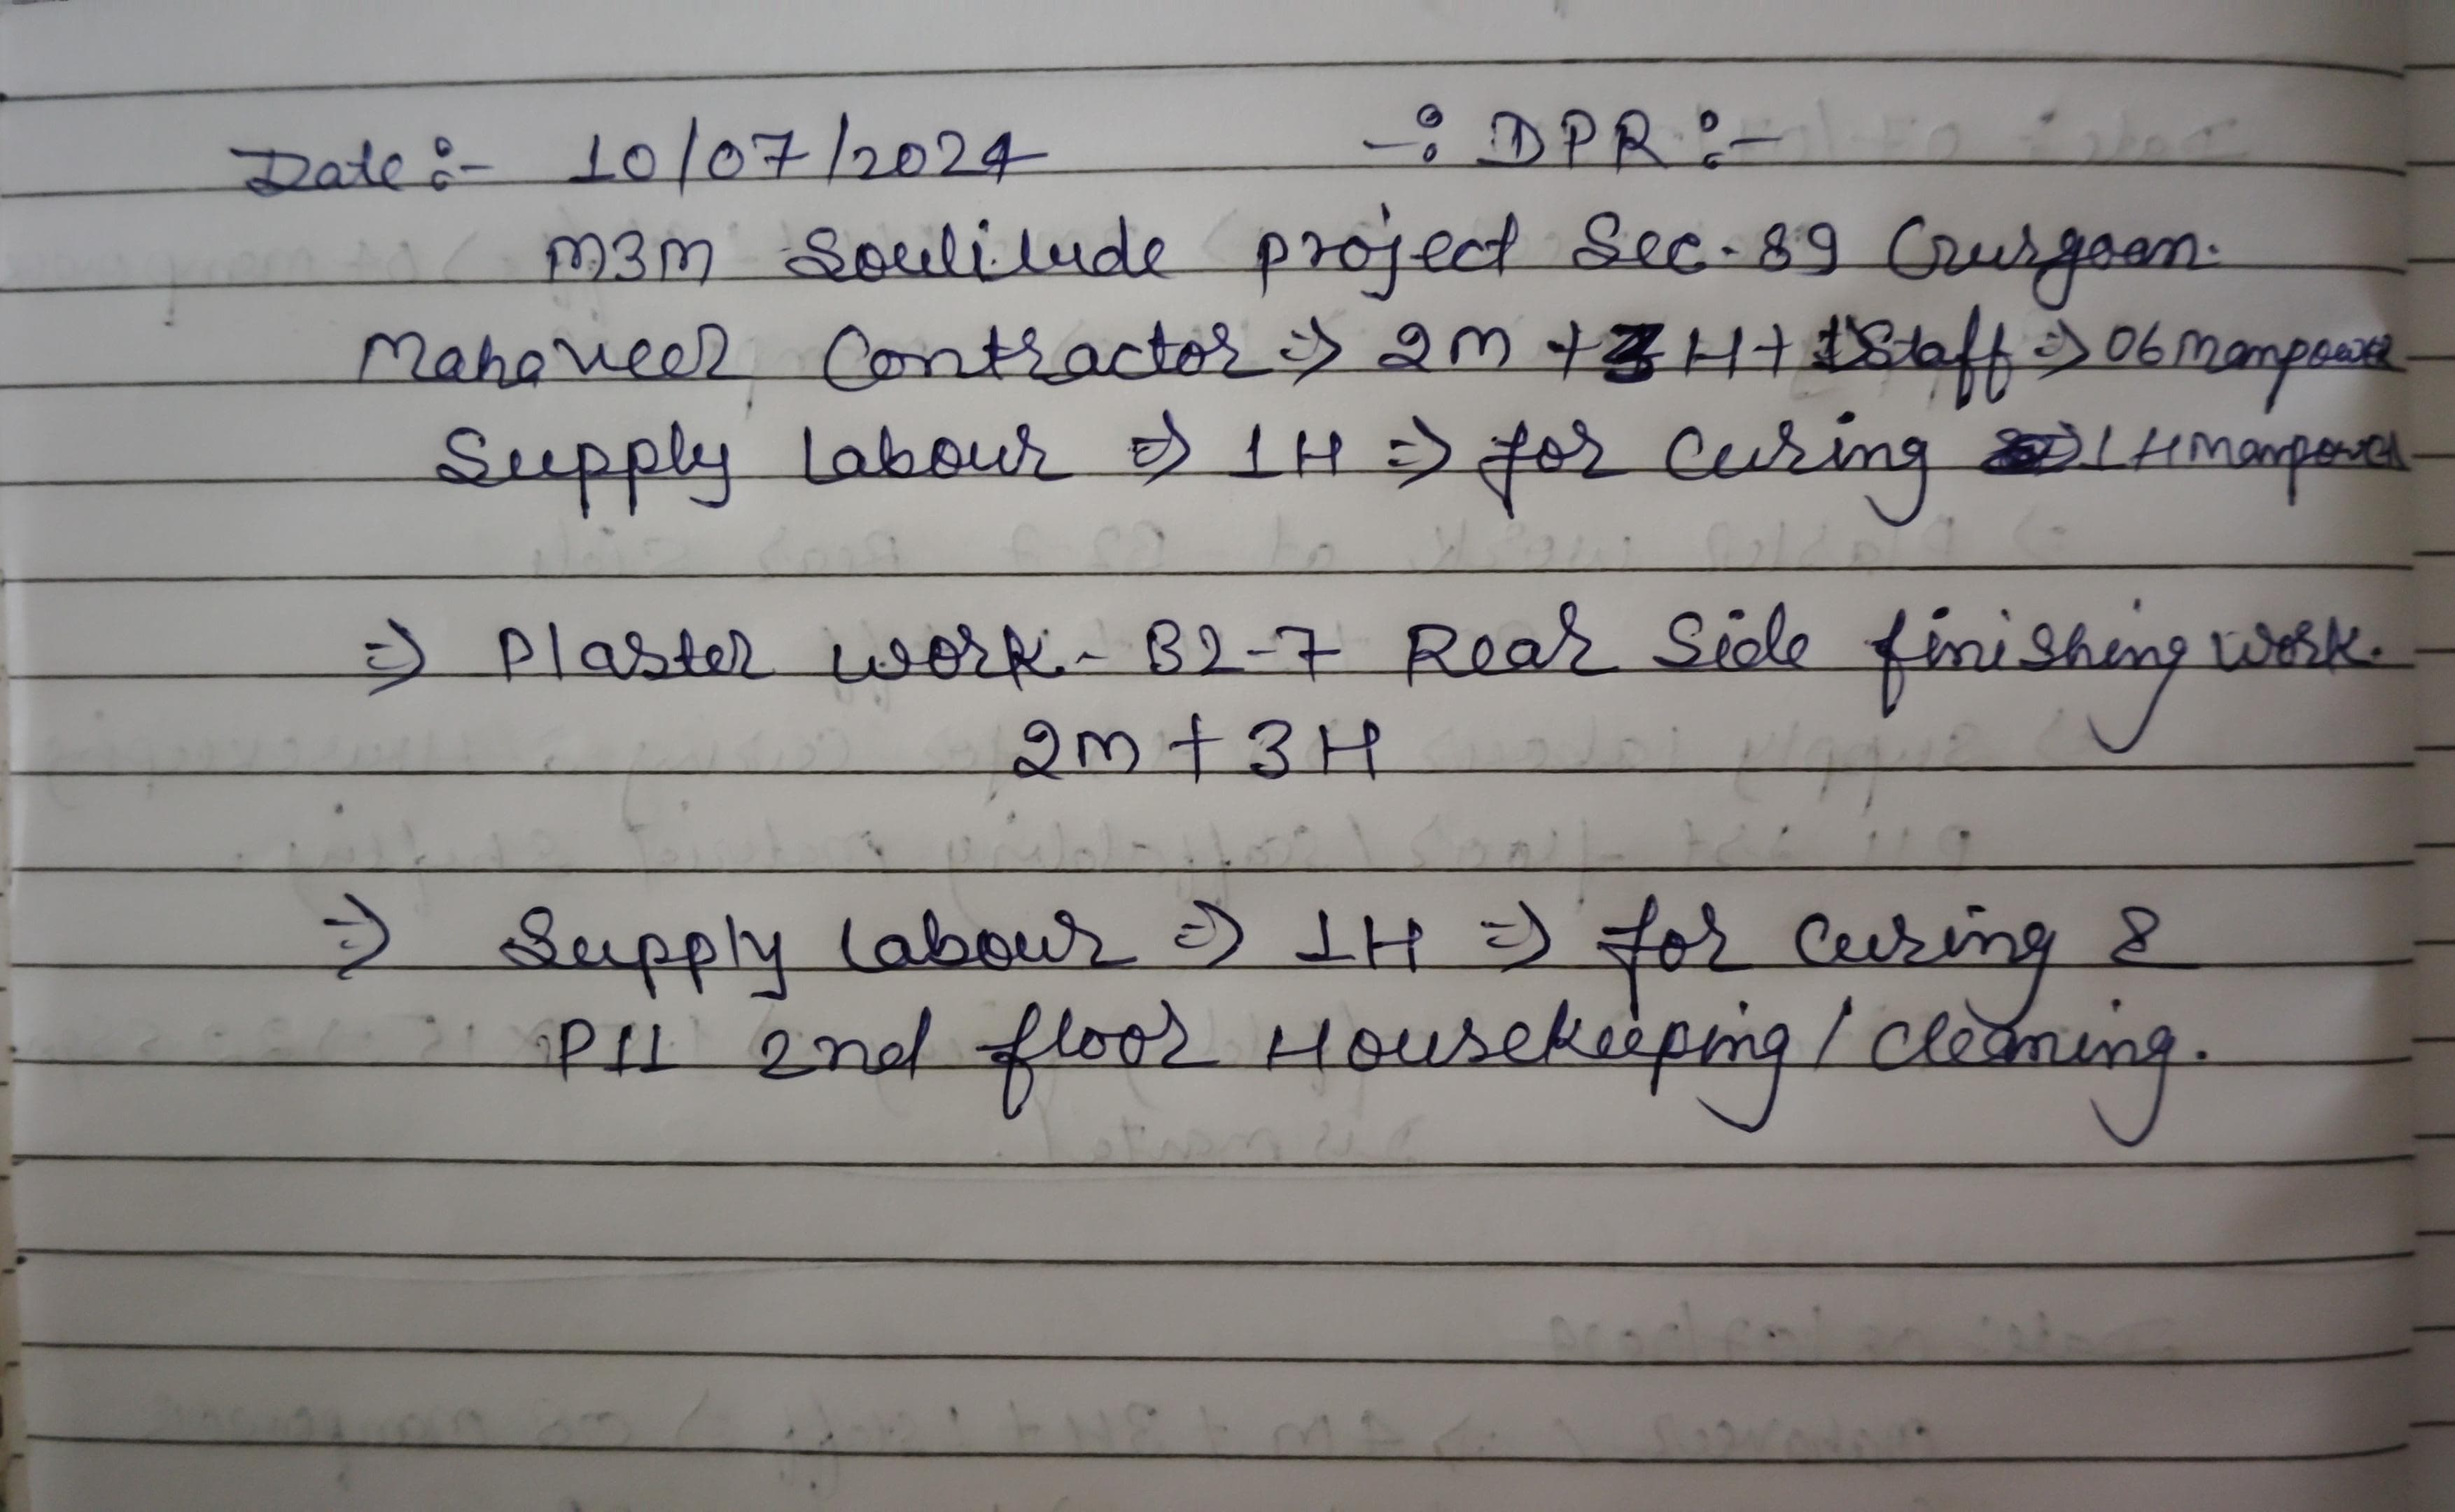 Date :- 10/07/2024 -: DPR :-
M3M Soulilude project Sec-89 Gurgoan.
Mahaveer Contractor => 2m + 3H + 1 Staff => 06 manpower
Supply labour => 1H => for curing => 1H manpower
=> Plaster work - B2-7 Rear Side finishing work.
2m + 3H
=> Supply labour => 1H => for curing &
P11 2nd floor Housekeeping / cleaning.